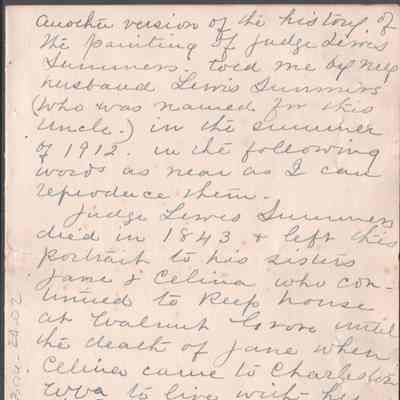 another version of the history of
the painting of Judge Lewis
Summers. told me by my
husband Lewis Summers
(who was named for this
uncle.) in the summer
of 1912. in the following
words as near as I can
reproduce them.
Judge Lewis Summers
died in 1843 & left this
portrait to his sisters
Jane & Celina who con-
tinued to keep house
at Walnut Grove until
the death of Jane when
Celina came to Charleston
WVa to live with his